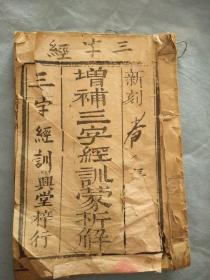 三字經
新刻
增補三字經訓蒙析解
三字經訓興堂梓行